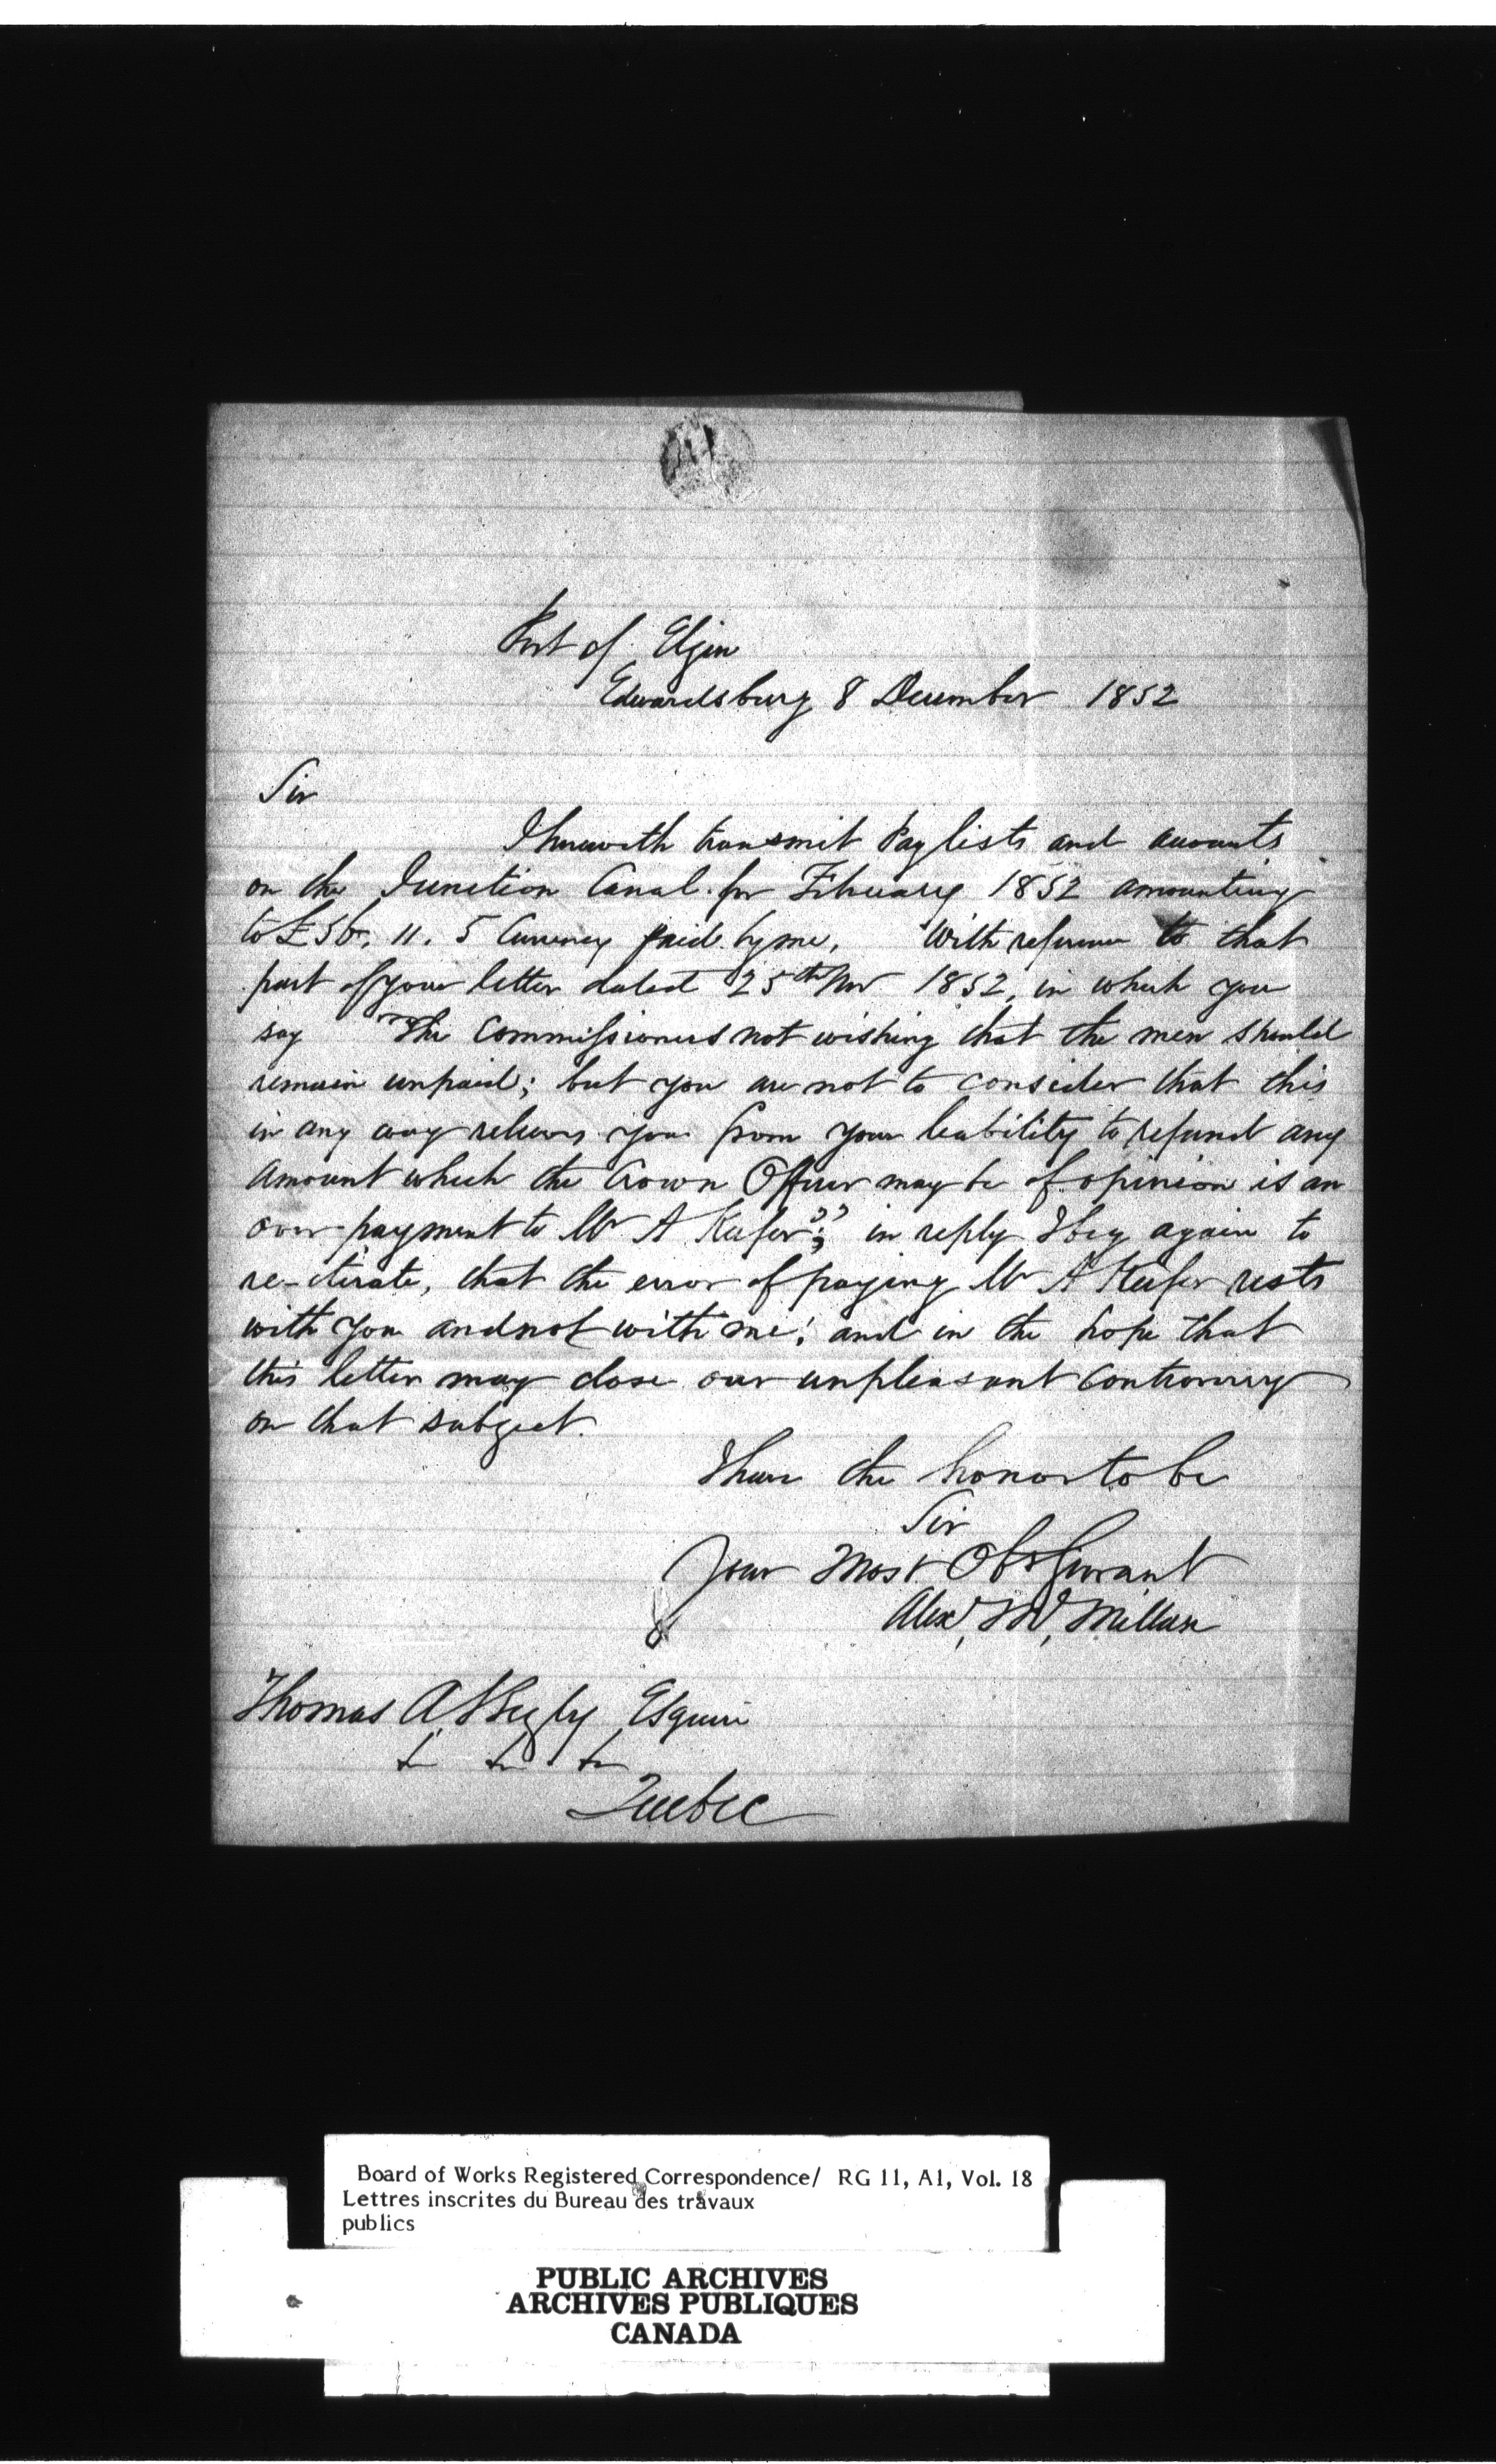 Port of Elgin
Edwardsburg 8 December 1852
Sir
I herewith transmit Paylists and accounts
on the Junction Canal for February 1852 amounting
to £56. 11. 5 Currency paid by me, With reference to that
part of your letter dated 25th Nov 1852, in which you
say "The Commissioners not wishing that the men should
remain unpaid; but you are not to consider that this
in any way relieves you from your leability to refund any
amount which the Crown Officer may be of opinion is an
over payment to Mr A Keefer"; in reply I beg again to
re-iterate, that the error of paying Mr A Keefer rests
with you and not with me; and in the hope that
this letter may close our unpleasant controversy
on that subject.
I have the honor to be
Sir
Your Most Obt Servant
Alexr, Mc, Millan
Thomas A Begly Esquire
Quebec
Board of Works Registered Correspondence/ RG 11, A1, Vol. 18
Lettres inscrites du Bureau des travaux
publics
PUBLIC ARCHIVES
ARCHIVES PUBLIQUES
CANADA